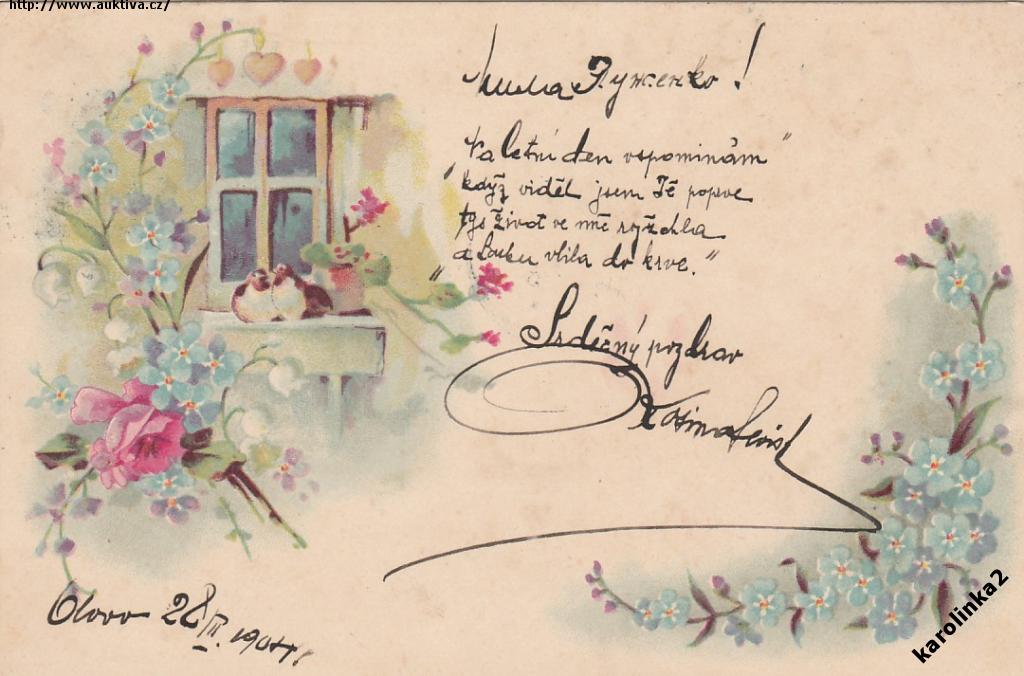 http://www.auktiva.cz/
Мила Руженко!
"Na letní den vspominám"
když viděl jsem Tě popve
tys život ve mě
a lásku vlila do krve."
Srděčný pozdrav
Olovo 28/III. 1904.
karolinka2